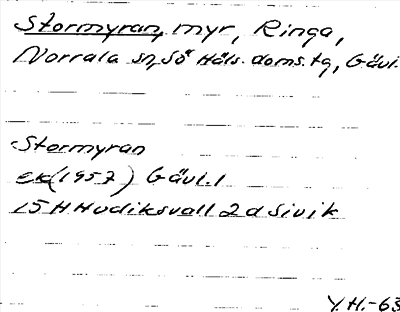 Stormyran, myr, Ringa,
Norrala sn, Sö Häls. doms. tg, Gävl.
Stormyran
ek (1957) Gävl. l
15 H Hudiksvall 2 d Sivik
Y.H.-63